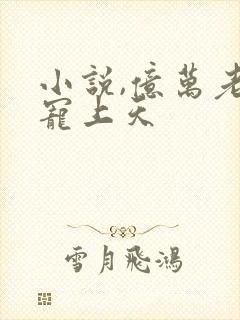 小說,億萬老
寵上天
雪月飛鴻